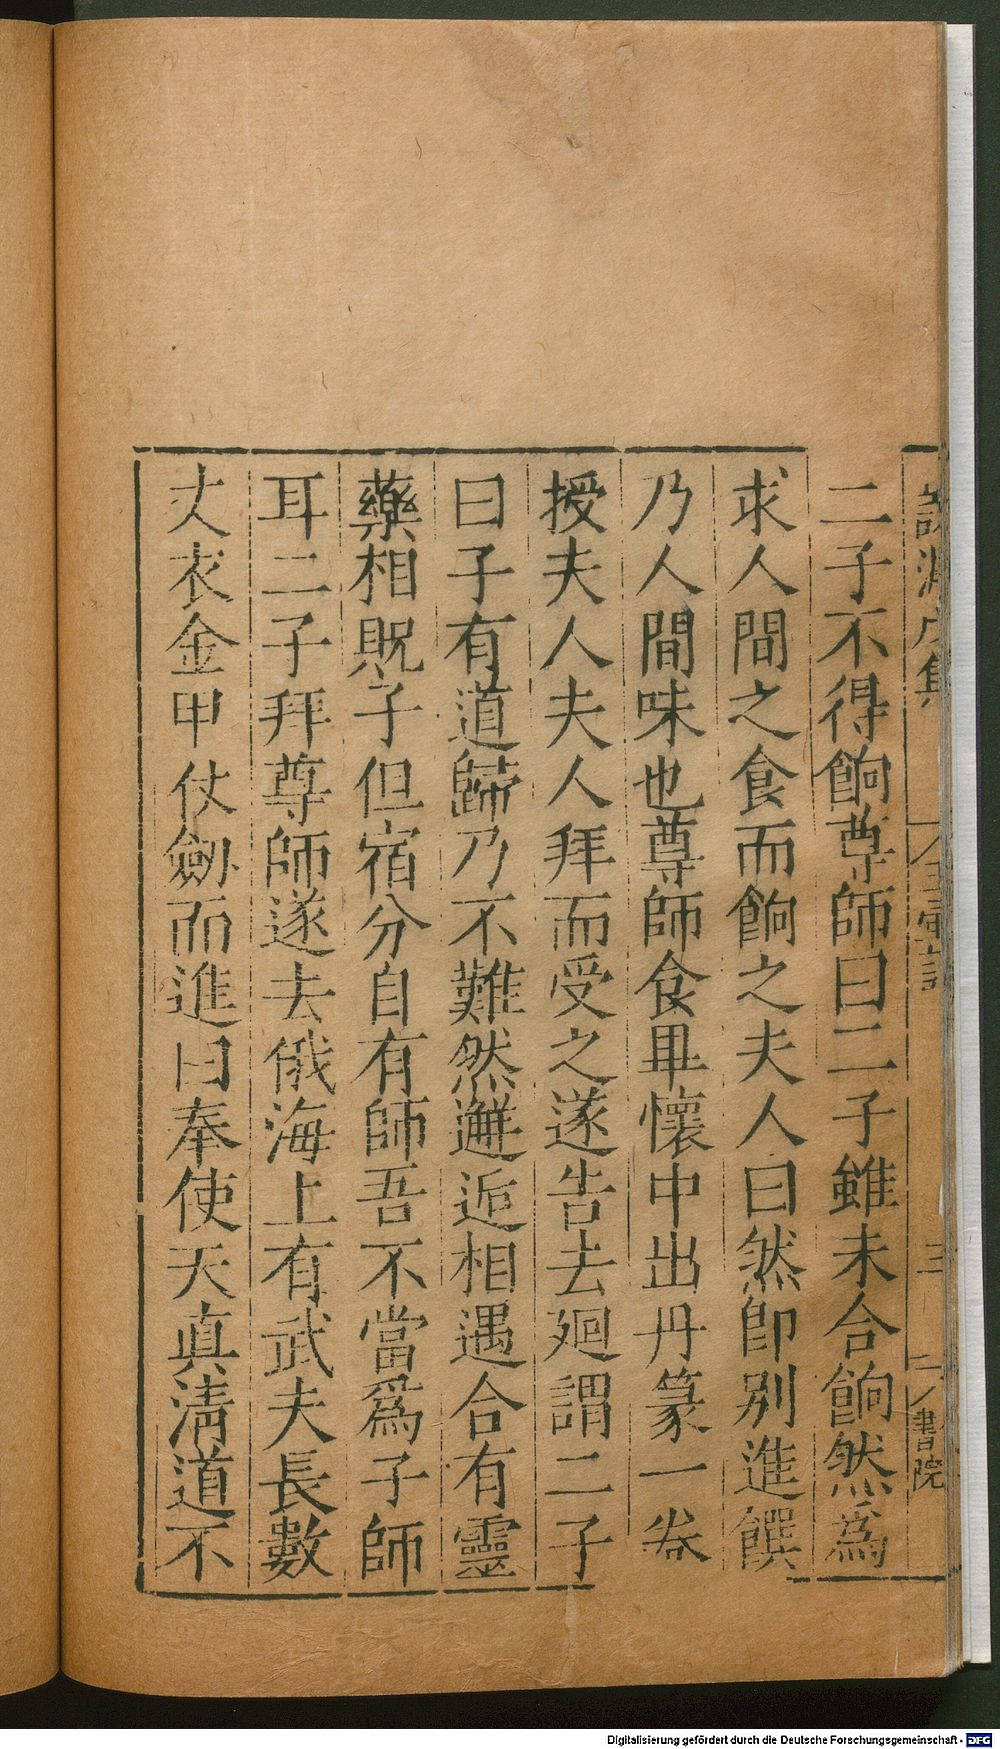 二子不得餉尊師曰二子雖未合餉然為
求人間之食而餉之夫人曰然即別進饌
乃人間味也尊師食畢懷中出丹篆一卷
授夫人夫人拜而受之遂告去廻謂二子
曰子有道歸乃不難然邂逅相遇合有靈
藥相貺子但宿分自有師吾不當爲子師
耳二子拜尊師遂去俄海上有武夫長數
丈衣金甲仗劔而進曰奉使天真清道不
三
書院
Digitalisierung gefördert durch die Deutsche Forschungsgemeinschaft - DFG